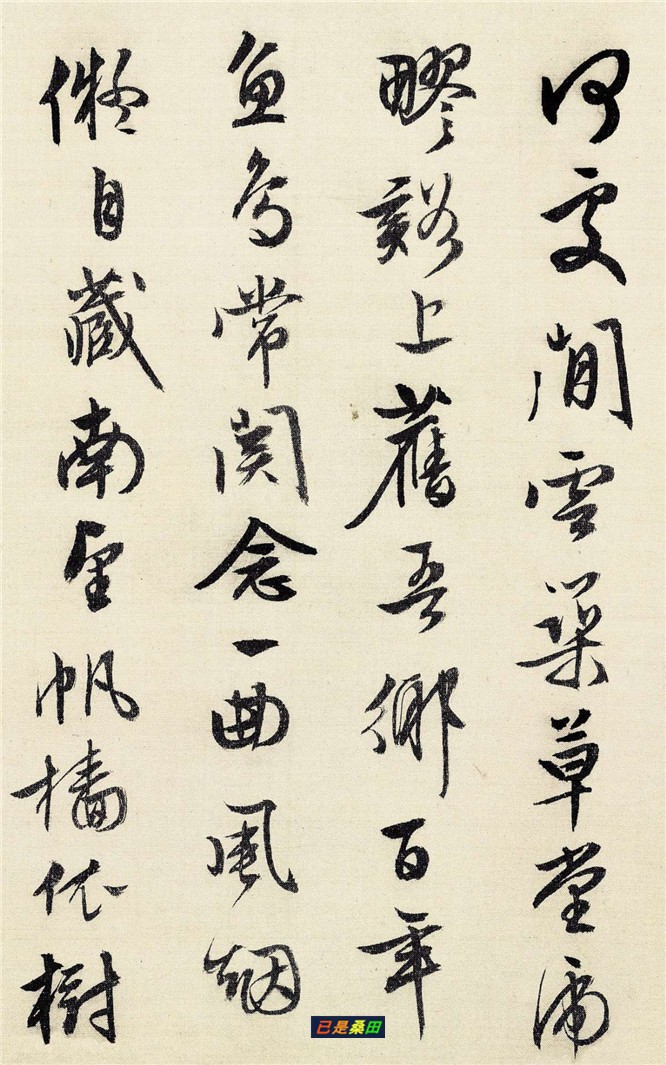 何處閒雲築草堂虎
疁谿上舊吾鄉百年
魚鳥常関念一曲風烟
儗自藏南望帆檣依樹
已是桑田